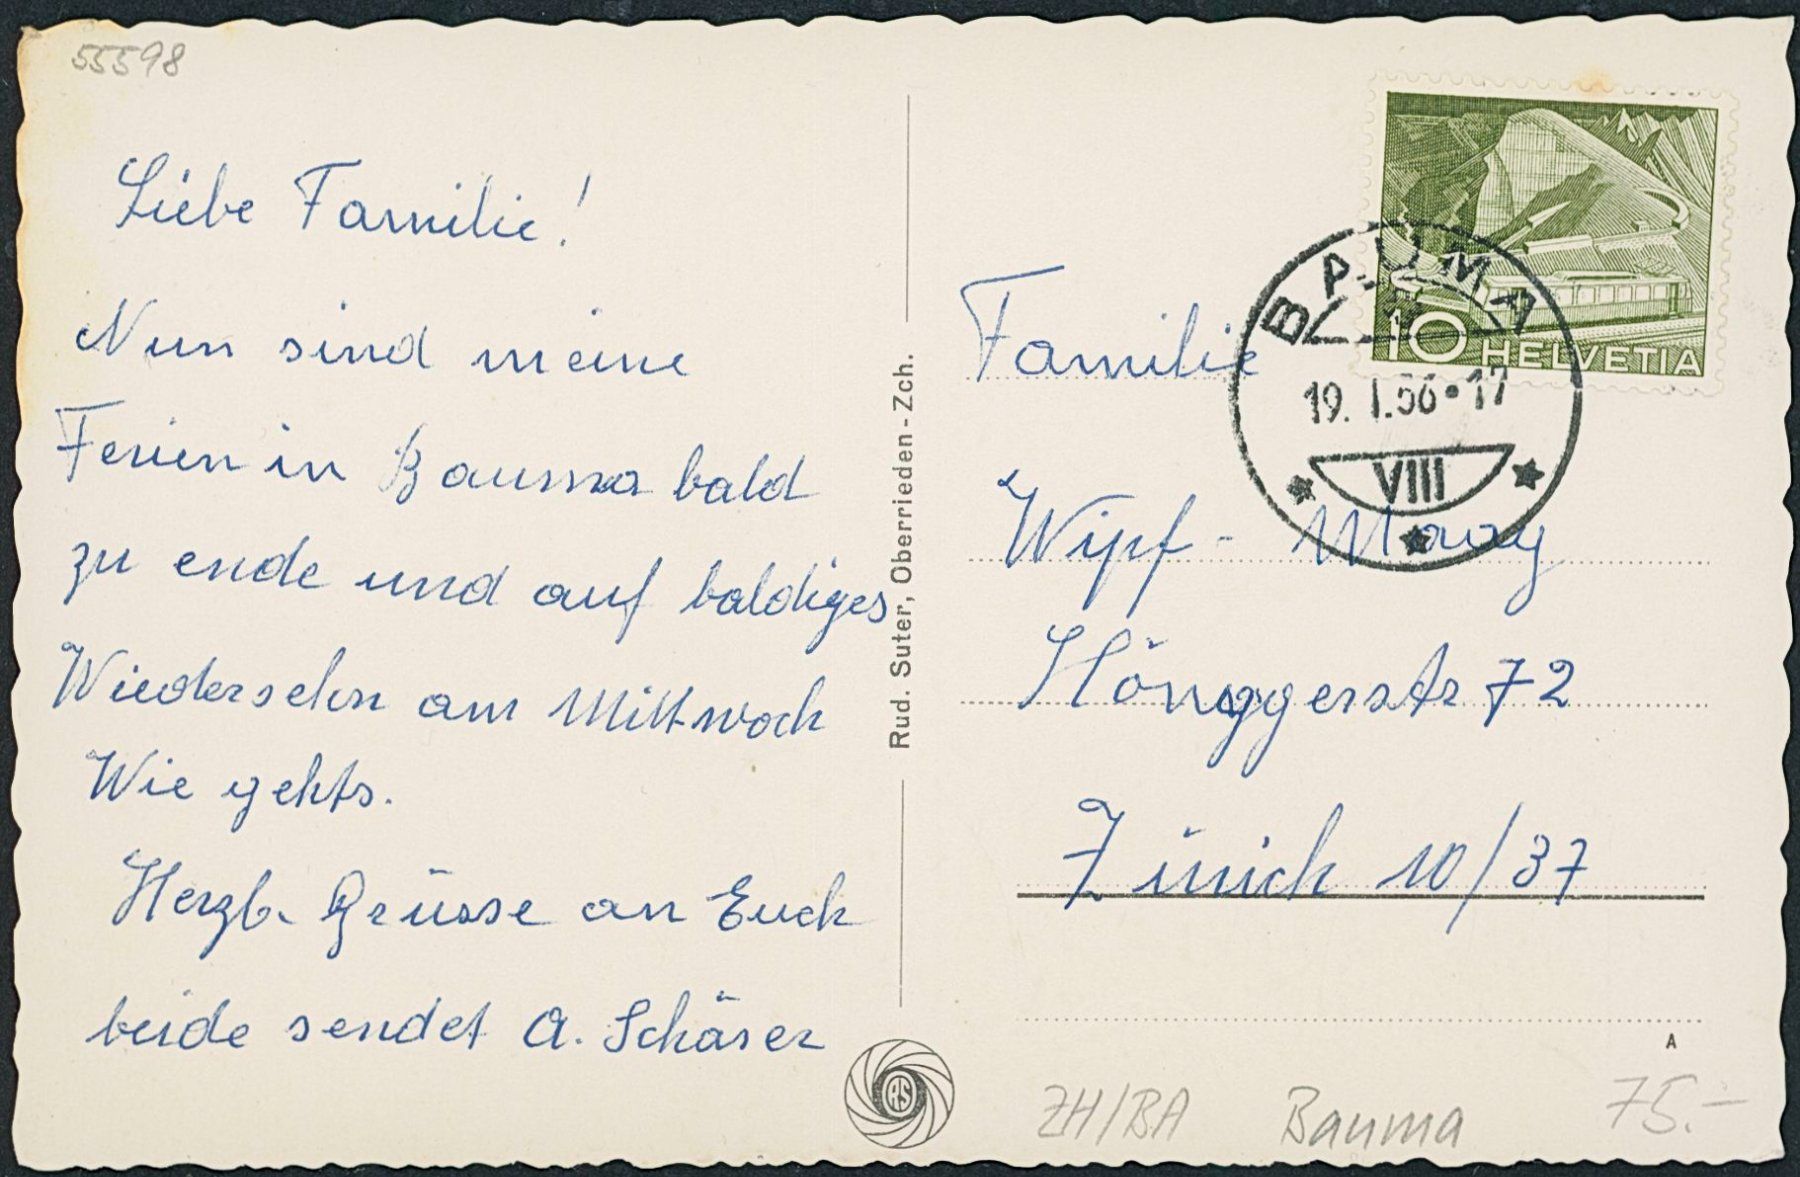 55598
Liebe Familie!
Nun sind meine
Ferien in Bauma bald
zu ende und auf baldiges
Wiedersehn am Mittwoch
Wie gehts.
Herzl. Grüsse an Euch
beide sendet A. Schärer
Rud. Suter, Oberrieden-Zch.
RS
10 HELVETIA
BAUMA
19. I. 56 • 17
VIII
Familie
Wipf -
Hönggerstr 72
Zürich 10/37
A
ZH/BA Bauma 75.-